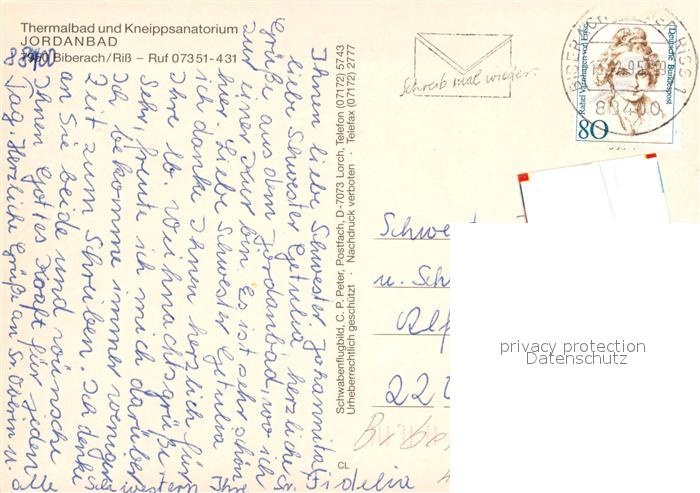 Thermalbad und Kneippsanatorium
JORDANBAD
7950 Biberach/Riß - Ruf 07351-431
88400
Ihnen liebe Schwester Johannita,
liebe Schwester Getulia herzliche
Grüße aus dem Jordanbad, wo ich
zur einer Kur bin. Es ist sehr schön
hier. Liebe Schwester Getulia
ich danke Ihnen herzlich für
Ihre lb. Weihnachtsgrüße
Sehr freute ich mich darüber
Ich bekomme immer weniger
Zeit zum Schreiben. Ich denke
an Sie beide und wünsche
Ihnen Gottes Kraft für jeden
Tag. Herzliche Grüße an Sr. Oberin u.
alle Schwestern Ihre Sr. Fidelia
Schwabenflugbild, C. P. Peter, Postfach, D-7073 Lorch, Telefon (07172) 5743
Urheberrechtlich geschützt · Nachdruck verboten · (07172) 2777
CL
Schreib mal wieder.
BIBERACH
88400
Rahel Varnhagen von Ense
Deutsche Bundespost
80
Schwe
u. Sch
privacy protection
Datenschutz